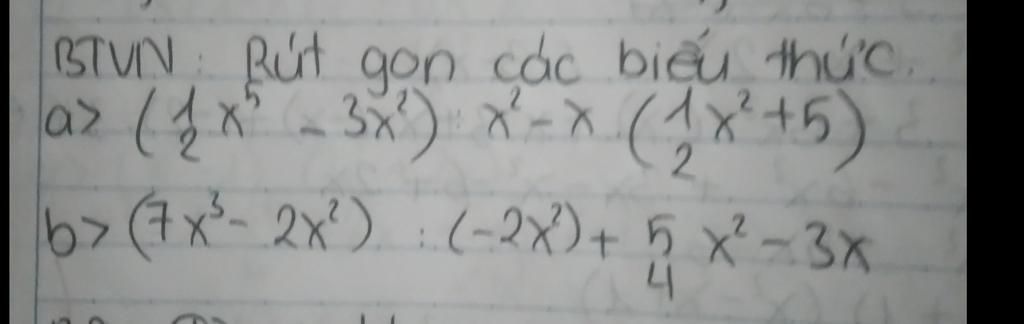 BTVN: Rút gọn các biểu thức.
a> (1/2 x⁵ - 3x²) : x² - x (1/2 x² + 5)
b> (7x³ - 2x²) : (-2x²) + 5/4 x² - 3x